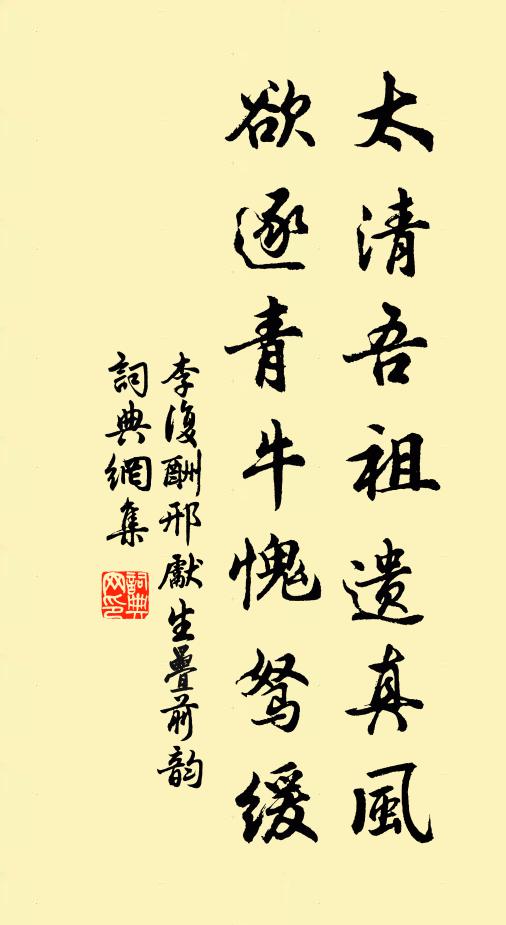 太清吾祖遗真風
欲逐青牛愧駑緩
李復酬邢獻生疊前韵
詞典網集
詞典网印